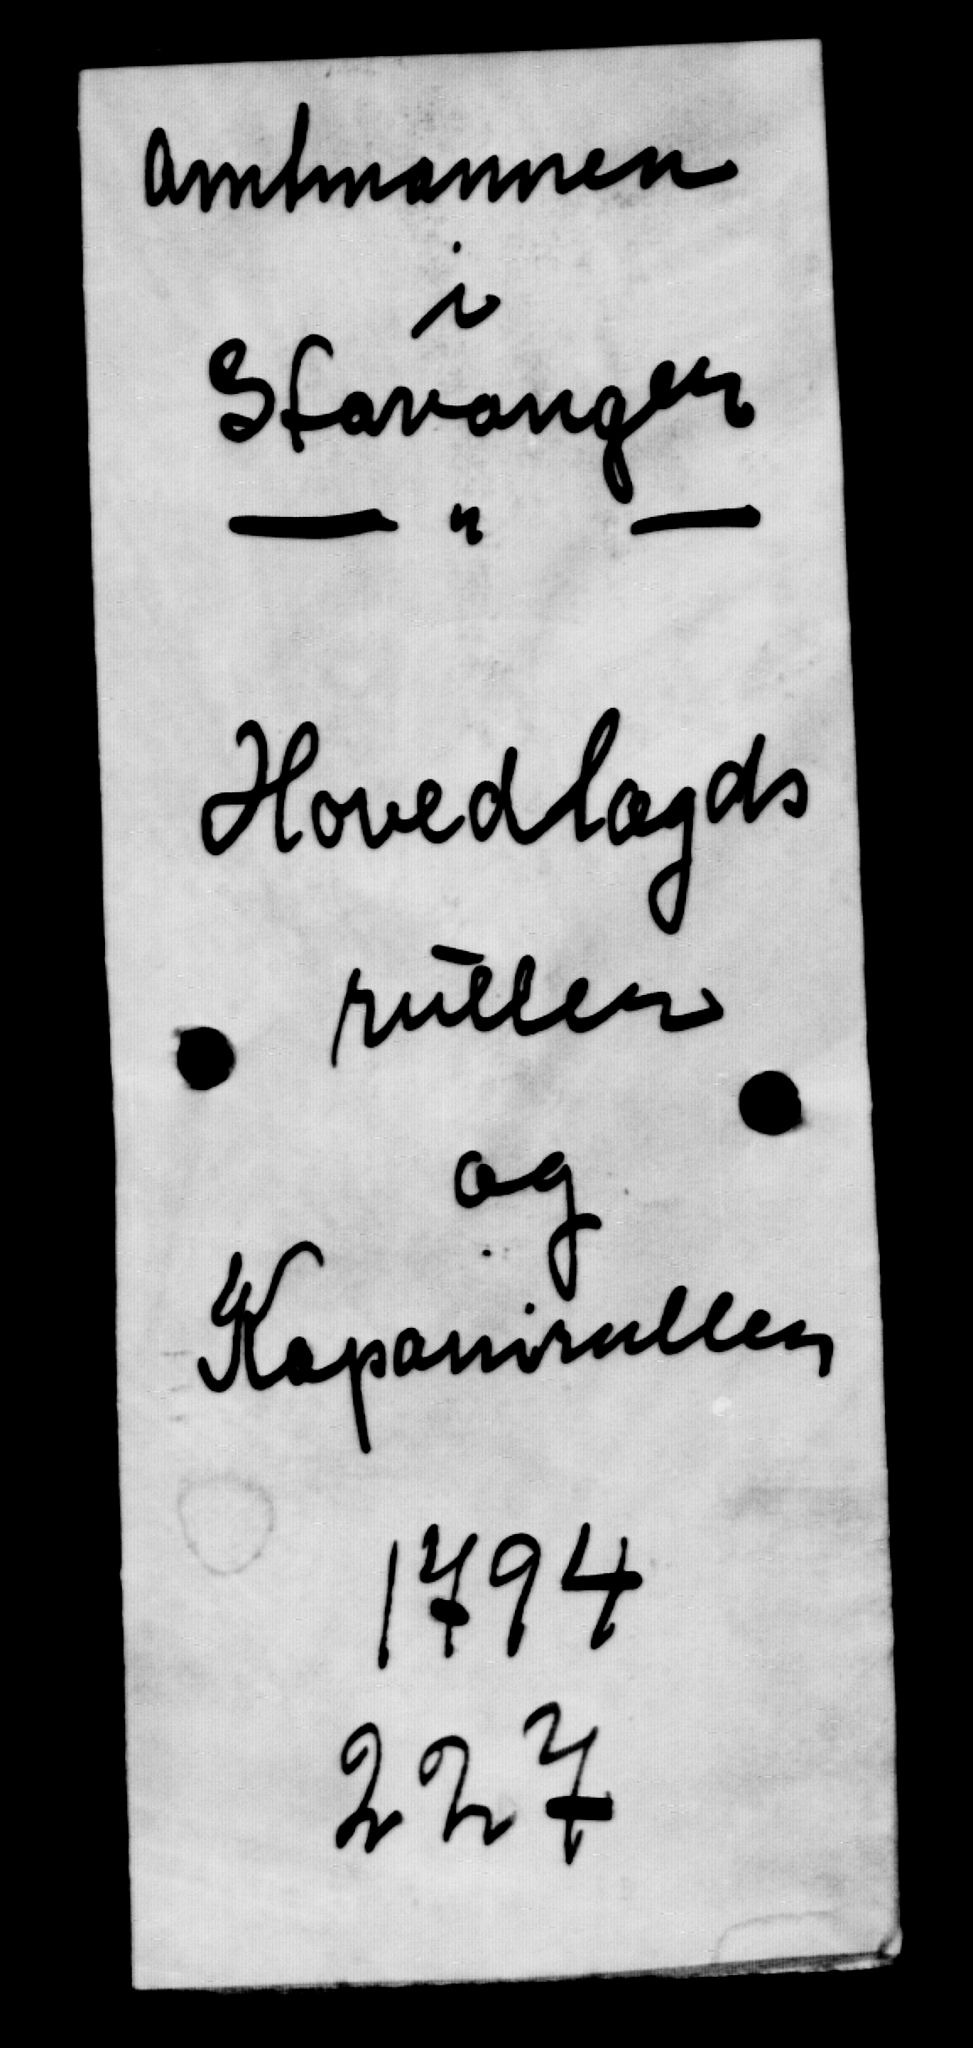 Amtmannen
i
Stavanger
— " —
Hovedlægds
rullen
og
Kopanirullen
1794
227